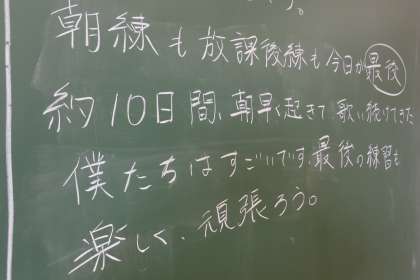 う。
朝練も放課後練も今日が最後
約10日間、朝早く起きて、歌い続けてきた
僕たちはすごいです。最後の練習も
楽しく、頑張ろう。